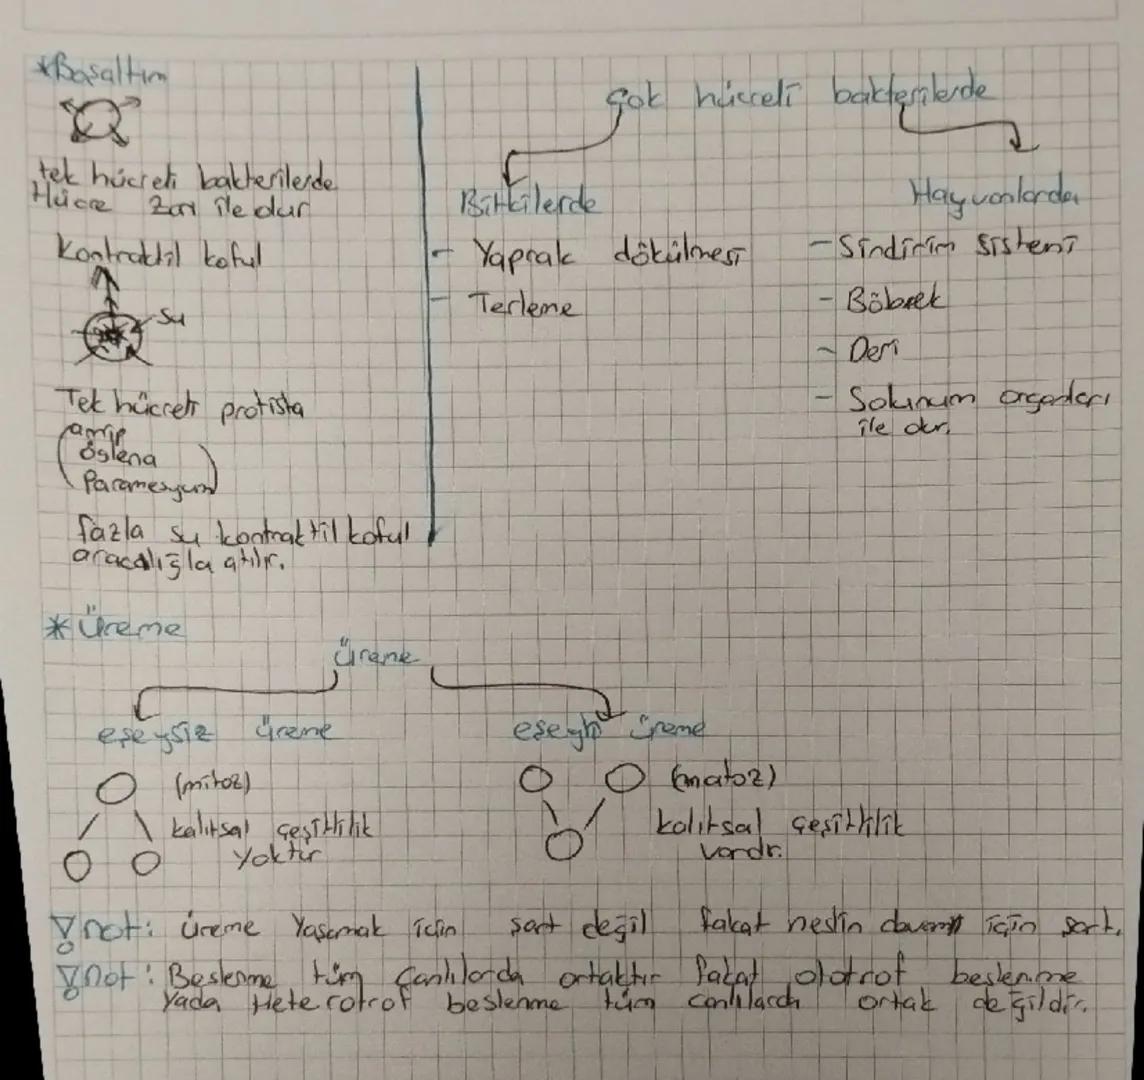 *Boşaltım
tek hücreli bakterilerde
Hücre zarı ile dur
Kontraktil koful
su
Tek hücreli protista
amip
öglena
Paramesyum
fazla su kontraktil koful
aracalığla atılır.
Çok hücreli bakterilerde
Bitkilerde
- Yaprak dökülmesi
- Terleme
Hayvanlarda
- Sindirim sistemi
- Böbrek
- Deri
- Solunum organları
ile dur.
*Üreme
Üreme
eşeysiz üreme
(mitoz)
kalıtsal çeşitlilik
yoktur
eşeyli üreme
(matoz)
kalıtsal çeşitlilik
vardır.
not: üreme Yaşamak için şart değil fakat neslin devamı için şart.
not: Beslenme tüm canlılarda ortaktır fakat ototrof beslenme
yada Heterotrof beslenme tüm canlılarda ortak değildir.